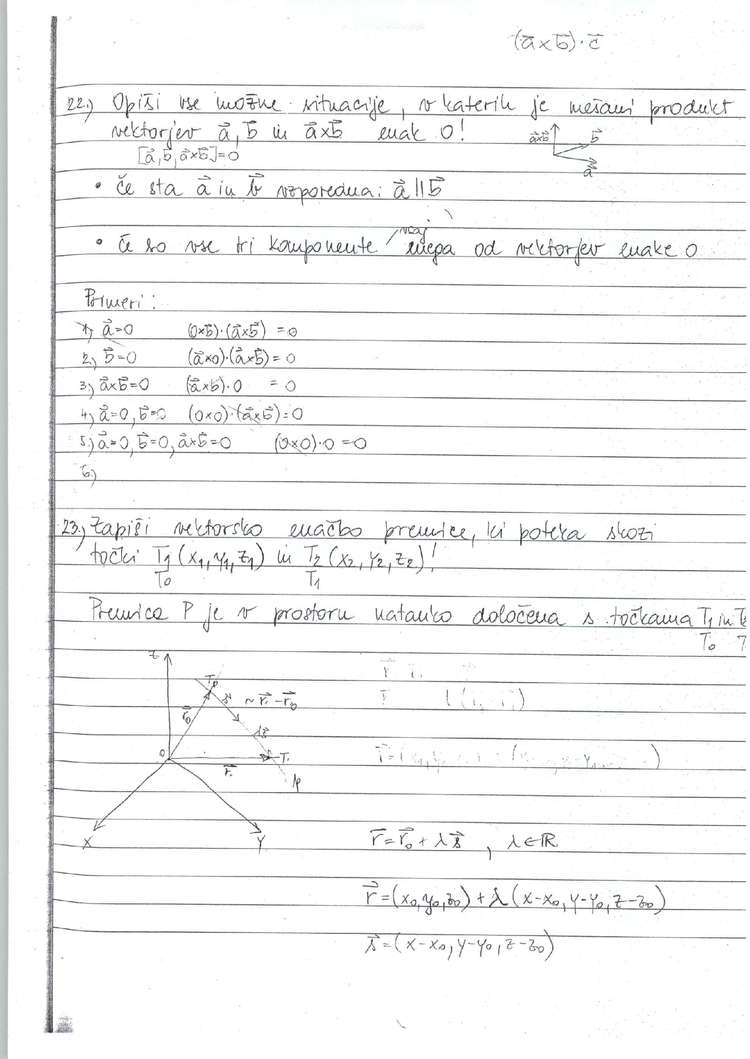 (a⃗ x b⃗)·c⃗
22.) Opiši vse možne situacije, v katerih je mešani produkt
vektorjev a⃗, b⃗ in a⃗xb⃗ enak 0!
[a⃗, b⃗, a⃗xb⃗]=0
a⃗xb⃗ b⃗ a⃗
• če sta a⃗ in b⃗ vzporedna: a⃗ || b⃗
• če so vse tri komponente vsaj enega od vektorjev enake 0
Primeri:
1) a⃗=0 (0xb⃗)·(a⃗xb⃗) = 0
2) b⃗=0 (a⃗x0)·(a⃗xb⃗) = 0
3) a⃗xb⃗=0 (a⃗xb⃗)·0 = 0
4) a⃗=0, b⃗=0 (0x0)·(a⃗xb⃗)=0
5) a⃗=0, b⃗=0, a⃗xb⃗=0 (0x0)·0=0
6)
23.) Zapiši vektorsko enačbo premice, ki poteka skozi
točki T1 (x1, y1, z1) in T2 (x2, y2, z2)!
T0 T1
Premica P je v prostoru natanko določena s točkama T1 in
T0
z
T0 s⃗ ~ r⃗1-r⃗0
r⃗0 λs⃗
0 r⃗1 T1
p
x y
r⃗=r⃗0+λs⃗, λ∈ℝ
r⃗=(x0, y0, z0)+λ(x-x0, y-y0, z-z0)
s⃗=(x-x0, y-y0, z-z0)